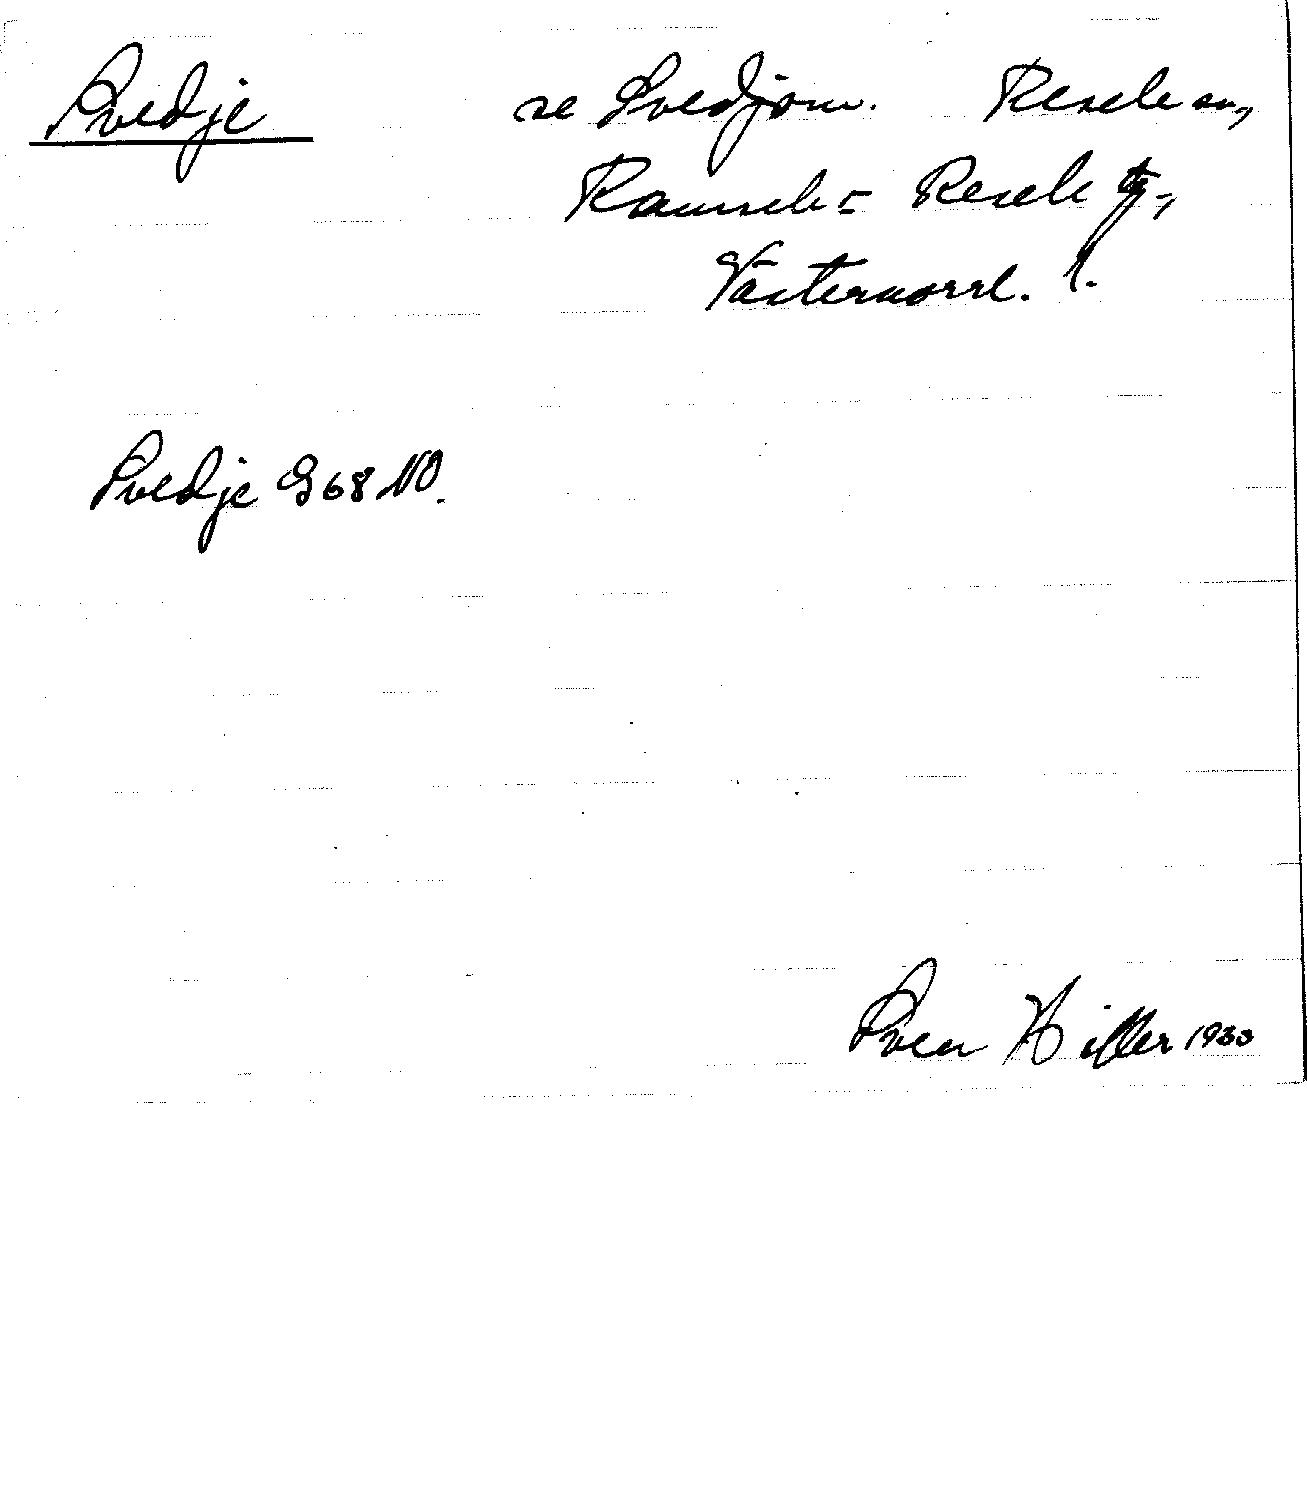 Svedje se Svedjom. Resele sn,
Ramsele- Resele tg,
Västernorrl. l.
Svedje G68 NO.
Sven Hiller 1933